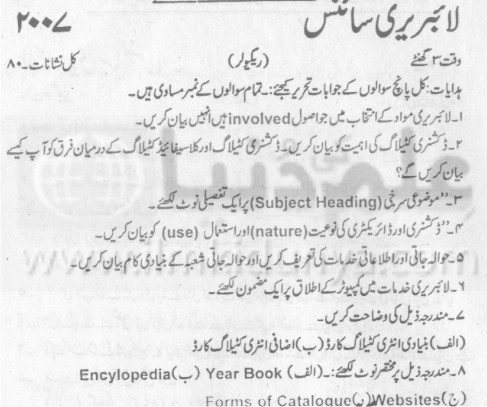 لائبریری سائنس ۲۰۰۷
وقت ۳ گھنٹے (ریگولر) کل نشانات۔۸۰
ہدایات: کل پانچ سوالوں کے جوابات تحریر کیجئے:۔تمام سوالوں کے نمبر مساوی ہیں۔
۱۔لائبریری مواد کے انتخاب میں جو اصول involved ہیں انہیں بیان کریں۔
۲۔ڈکشنری کٹیلاگ کی اہمیت کو بیان کریں۔ڈکشنری کٹیلاگ اور کلاسیفائیڈ کٹیلاگ کے درمیان فرق کو آپ کیسے
بیان کریں گے؟
۳۔"موضوعی سرخی (Subject Heading) پر ایک تفصیلی نوٹ لکھئے۔
۴۔"ڈکشنری اور ڈائریکٹری کی نوعیت (nature) اور استعمال (use) کو بیان کریں۔
۵۔حوالہ جاتی اور اطلاعاتی خدمات کی تعریف کریں اور حوالہ جاتی شعبہ کے بنیادی کام بیان کریں۔
۶۔لائبریری خدمات میں کمپیوٹر کے اطلاق پر ایک مضمون لکھئے۔
۷۔مندرجہ ذیل کی وضاحت کریں۔
(الف) بنیادی انٹری کٹیلاگ کارڈ (ب) اضافی انٹری کٹیلاگ کارڈ
۸۔مندرجہ ذیل پر مختصر نوٹ لکھئے:۔(الف) Year Book (ب) Encylopedia
(ج) Websites (د) Forms of Catalogue
علم کی دنیا
www.ilmkidunya.com